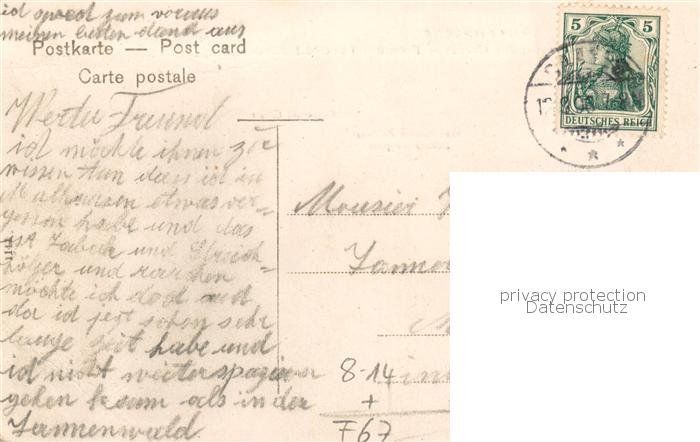 ich sped zum voraus
meinen besten dand aus
Postkarte — Post card
Carte postale
Werter Freund
ich möchte ihnen zu
wissen tun dass ich in
Mülhausen etwas ver-
gessen habe und das
ist Taback und Streich
hölzer und rauchen
möchte ich doch und
da ich jezt schon sehr
lange Zeit habe und
ich nicht weiter spazieren
gehen kaum als in der
Tannenwald
5 5
DEUTSCHES REICH
Mousier
Tanno
8-14
+
F67
privacy protection
Datenschutz